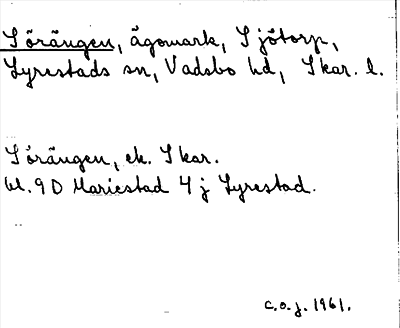 Sörängen, ägomark, Sjötorp,
Lyrestads sn, Vadsbo hd, Skar. l.
Sörängen, ek. Skar.
bl. 9D Mariestad 4 j Lyrestad.
C.O.J. 1961.